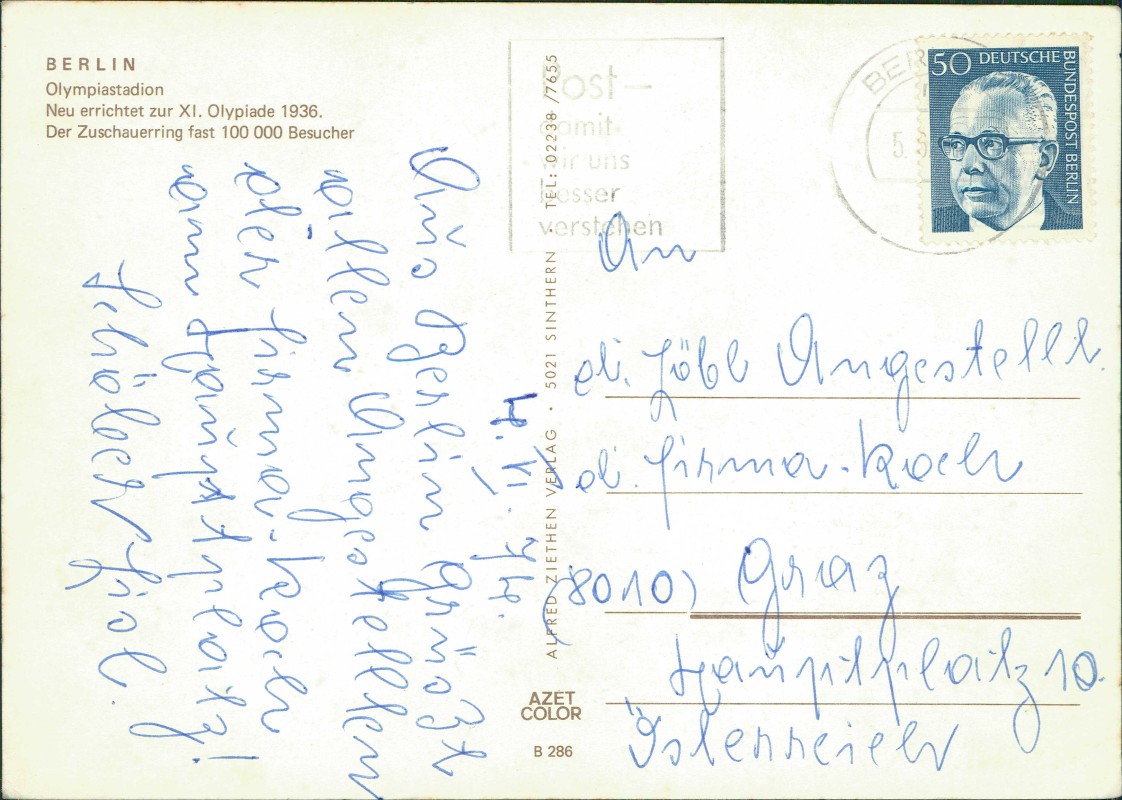 BERLIN
Olympiastadion
Neu errichtet zur XI. Olypiade 1936.
Der Zuschauerring fast 100 000 Besucher
4. VI. 74.
Aus Berlin grüßt
allen Angestellten
der Firma-Koch
am Hauptplatz!
ALFRED ZIETHEN VERLAG · 5021 SINTHERN · TEL: 02238/7655
AZET
COLOR
B 286
Post –
damit
wir uns
besser
verstehen
BER
5.
50 DEUTSCHE
BUNDESPOST BERLIN
An
di. löbl Angestellt.
di. Firma-Koch
(8010) Graz
Hauptplatz 10.
Österreich